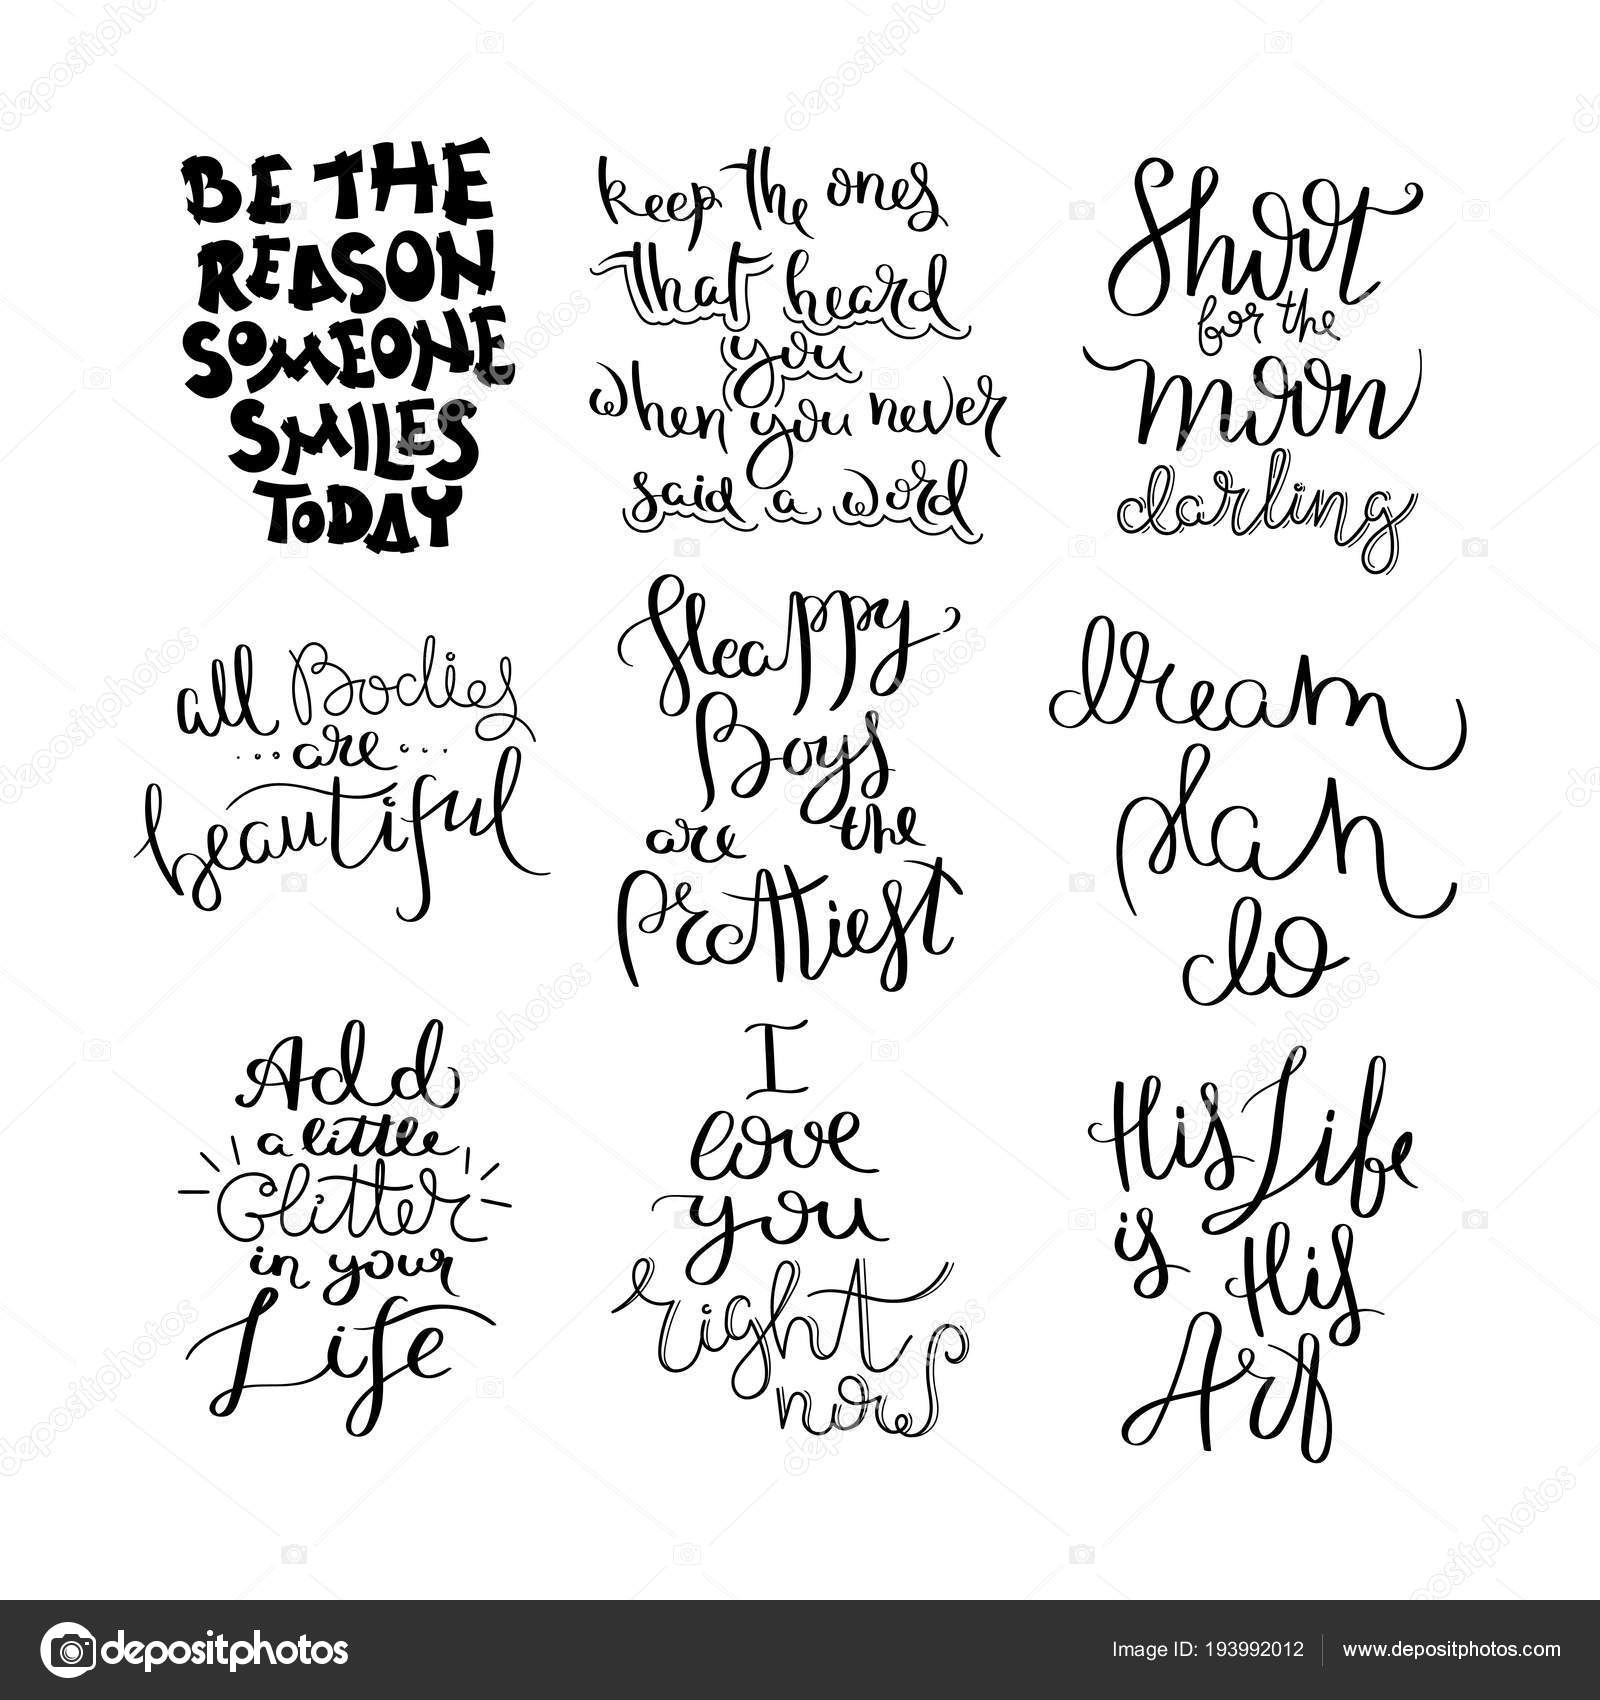 BE THE
REASON
SOMEONE
SMILES
TODAY
keep the ones
that heard
you
when you never
said a word
Shoot
for the
moon
darling
all Bodies
are
beautiful
Heappy
Boys
are the
Prettiest
dream
plan
do
Add
a little
Glitter
in your
Life
I
love
you
right
now
His Life
is His
Art
depositphotos
Image ID: 193992012
www.depositphotos.com